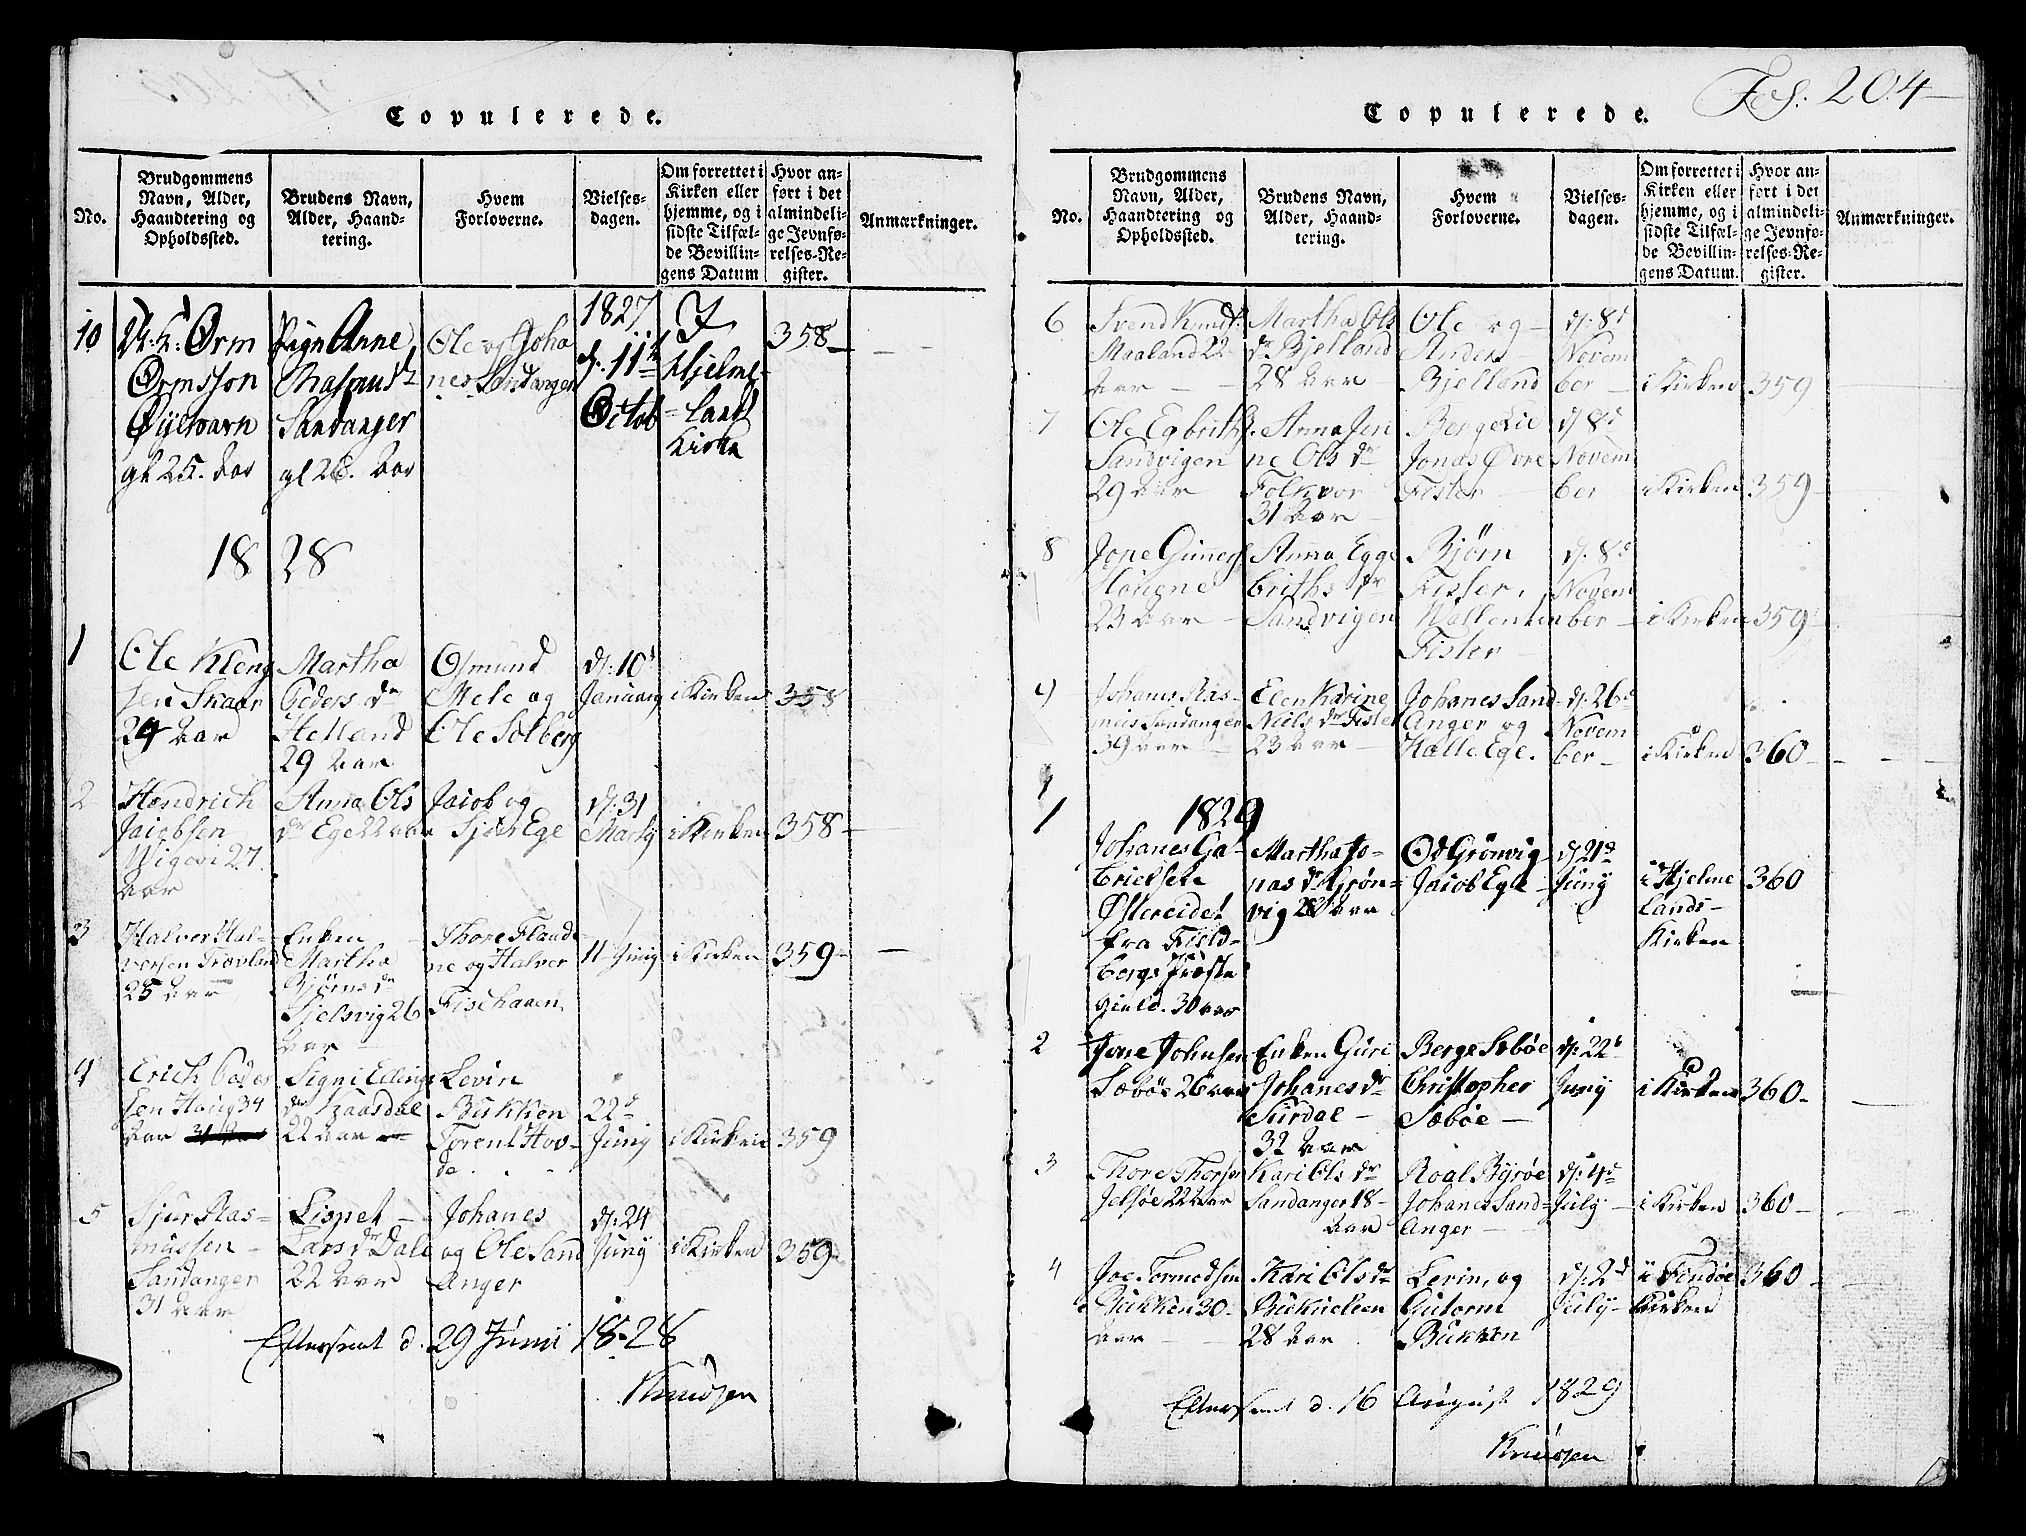 Copulerede.
No.
Brudgommens
Navn, Alder,
Haandtering og
Opholdssted.
Brudens Navn,
Alder, Haand-
tering.
Hvem
Forloverne.
Vielses-
dagen.
Om forrettet i
Kirken eller
hjemme, og i
sidste Tilfæl-
de Bevillin-
gens Datum
Hvor an-
ført i det
almindeli-
ge Jevnfø-
relses-Re-
gister.
Anmærkninger.
10
Ørm
Ørmsson
gl 25. Aar
Pign Anne
Rasmusd
Sandanger
gl 26. Aar
Ole og Joha
nes Sandanger
1827
d. 11te
Octob
I
Hjelme-
land
Kirke
358
1828
1
Ole Kleng
sen Skaar
24 Aar
Martha
Peders dr
Helland
29 Aar
Osmund
Mele og
Ole Solberg
d. 10d
January
i Kirken
358
2
Hendrich
Jacobsen
27
Aar
Anna Ols
dr Ege 22 aar
Jacob og
Sjur Ege
d. 31
Marty
i Kirken
358
3
Halver Hal-
versen
25 Aar
Enken
Martha
Bjørns dr
26
Aar
Thore
ne og Halver
Fisehaaen
11 Juny
i Kirken
359
4
Erich Peder
sen Haug 34
Aar
Signi Ellings
dr
22 Aar
Levin
Bukken
Hov-
de
22d
Juny
i Kirken
359
5
Sjur Ras-
mussen
Sandanger
31 Aar
Lispet
Lars dr Dale
22 Aar
Johanes
og Ole Sand
Anger
d. 24
Juny
i Kirken
359
Efterseet d. 29 Junii 1828
Knudsen
Fol: 204
Copulerede.
No.
Brudgommens
Navn, Alder,
Haandtering og
Opholdssted.
Brudens Navn,
Alder, Haand-
tering.
Hvem
Forloverne.
Vielses-
dagen.
Om forrettet i
Kirken eller
hjemme, og i
sidste Tilfæl-
de Bevillin-
gens Datum.
Hvor an-
ført i det
almindeli-
ge Jevnfø-
relses-Re-
gister.
Anmærkninger.
6
Svend Knuds.
Maaland 22
Aar
Martha Ols
dr Bjelland
28 Aar
Ole og
Anders
Bjelland
d. 8d
Novem
ber
i Kirken
359
7
Ole Egbriths.
Sandvigen
29 Aar
Anna Jeri
ne Ols dr
Folkvor
31 Aar
Berge Lie
Jonas Øvre
Fister
d. 8d
Novem
ber
i Kirken
359
8
Jone
Hougene
23 Aar
Anna Egge
briths dr
Sandvigen
Bjørn
Fister,
Wallentin
Fister
d. 8d
Novem
ber
i Kirken
359
9
Johanes Ras-
mus Sandanger
39 aar
Elen Karine
Niels dr Fister
23 aar
Johanes Sand-
Anger og
Halle Ege.
d. 26d
Novem
ber
i Kirken
360
1829
1
Johanes Ga-
brielsen
Østereidet
fra Field-
bergs Præste
gield. 30 aar
Martha Jo-
nas dr Grøn-
vig 28 aar
Od Grønvig
Jacob Ege
d. 21d
Juny
i Hjelme
Lands-
Kirken
360
2
Jone Johnsen
Sæbøe 26 aar
Enken Guri
Johanes dr
Surdal
32 Aar
Berge Sæbøe
Christopher
Sæbøe
d. 22d
Juny
i Kirken
360
3
Thore Thorsen
Jelsøe 22 Aar
Kari Ols dr
Sandanger 18
Aar
Roal Byrøe
Johanes Sand-
Anger
d. 4d
July
i Kirken
360
4
Joe Tormodsen
Bukken 30
aar
Kari Ols dr
28 Aar
Levin, og
Gutorm
Bukken
d. 2d
July
i Findøe
Kirken
360
Efterseet d. 16 August 1829
Knudsen